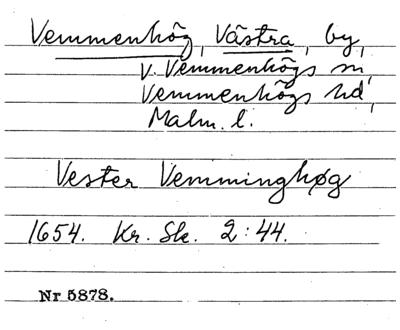 Vemmenhög, Västra, by,
V. Vemmenhögs sn,
Vemmenhögs hd,
Malm. l.
Vester Vemminghøg
1654. Kr. Sk. 2:44.
Nr 5878.